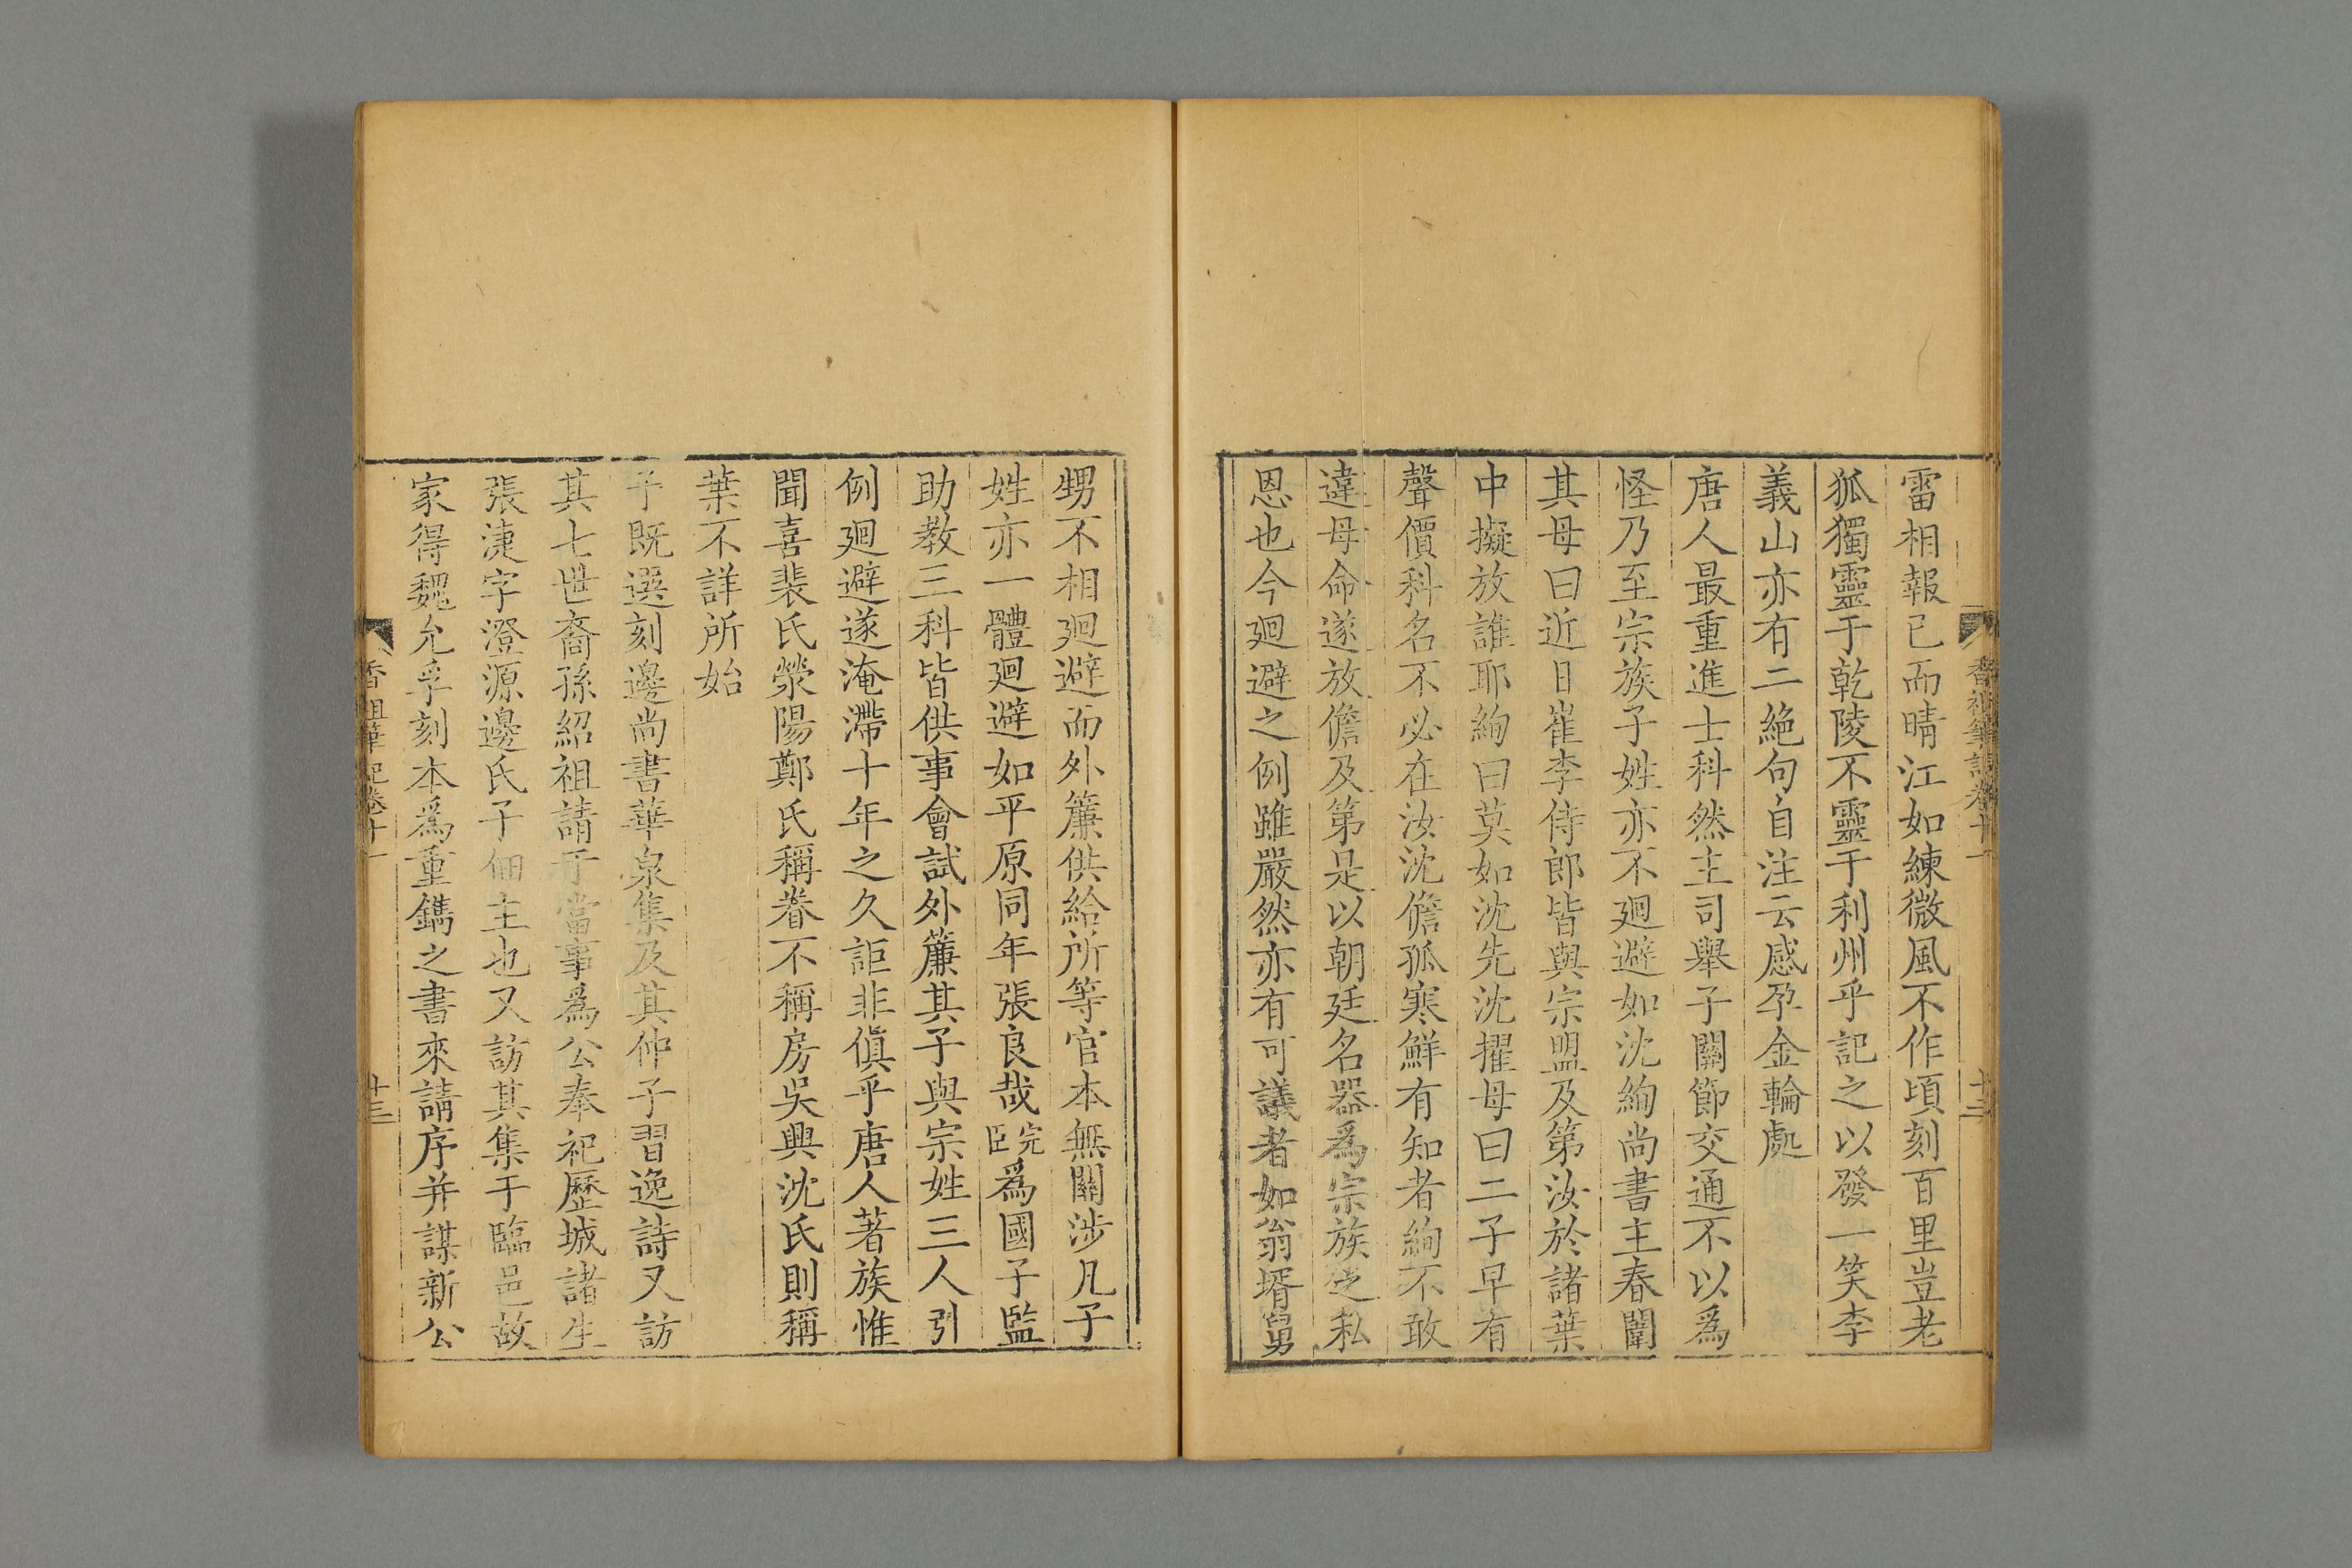 香祖筆記卷十一
十二
雷相報已而晴江如練微風不作頃刻百里豈老
狐獨靈于乾陵不靈于利州乎記之以發一笑李
義山亦有二絶句自注云感孕金輪處
唐人最重進士科然主司舉子關節交通不以爲
怪乃至宗族子姓亦不廻避如沈絢尚書主春闈
其母曰近日崔李侍郎皆與宗盟及第汝於諸葉
中擬放誰耶絢曰莫如沈先沈擢母曰二子早有
聲價科名不必在汝沈儋孤寒鮮有知者絢不敢
違母命遂放儋及第是以朝廷名器爲宗族之私
恩也今廻避之例雖嚴然亦有可議者如翁壻舅
甥不相廻避而外簾供給所等官本無關涉凡子
姓亦一體廻避如平原同年張良哉完臣爲國子監
助教三科皆供事會試外簾其子與宗姓三人引
例廻避遂淹滯十年之久詎非傎乎唐人著族惟
聞喜裴氏滎陽鄭氏稱眷不稱房吳興沈氏則稱
葉不詳所始
予既選刻邊尚書華泉集及其仲子習逸詩又訪
其七世裔孫紹祖請于當事爲公奉祀歷城諸生
張淒字澄源邊氏子佃主也又訪其集于臨邑故
家得魏允孚刻本爲重鐫之書來請序并謀新公
香祖筆記卷十一
十三